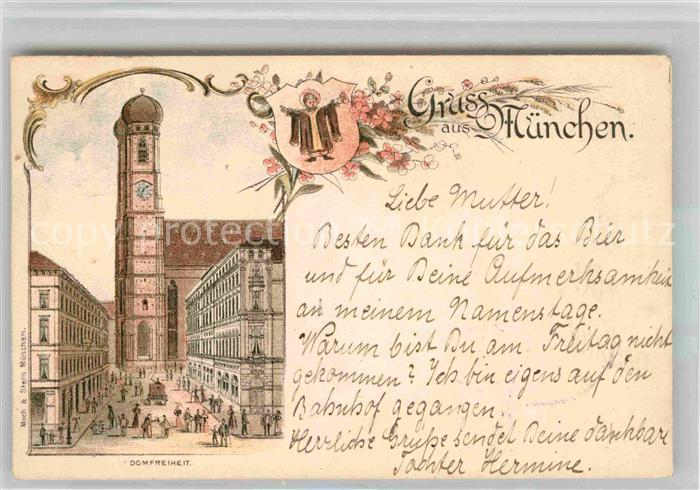 Gruss
aus München.
Liebe Mutter!
Besten Dank für das Bier
und für Deine Aufmerksamkeit
an meinem Namenstage.
Warum bist Du am Freitag nicht
gekommen? Ich bin eigens auf den
Bahnhof gegangen.
Herzliche Grüße sendet Deine dankbare
Tochter Hermine.
Mech & Stern München.
DOMFREIHEIT.